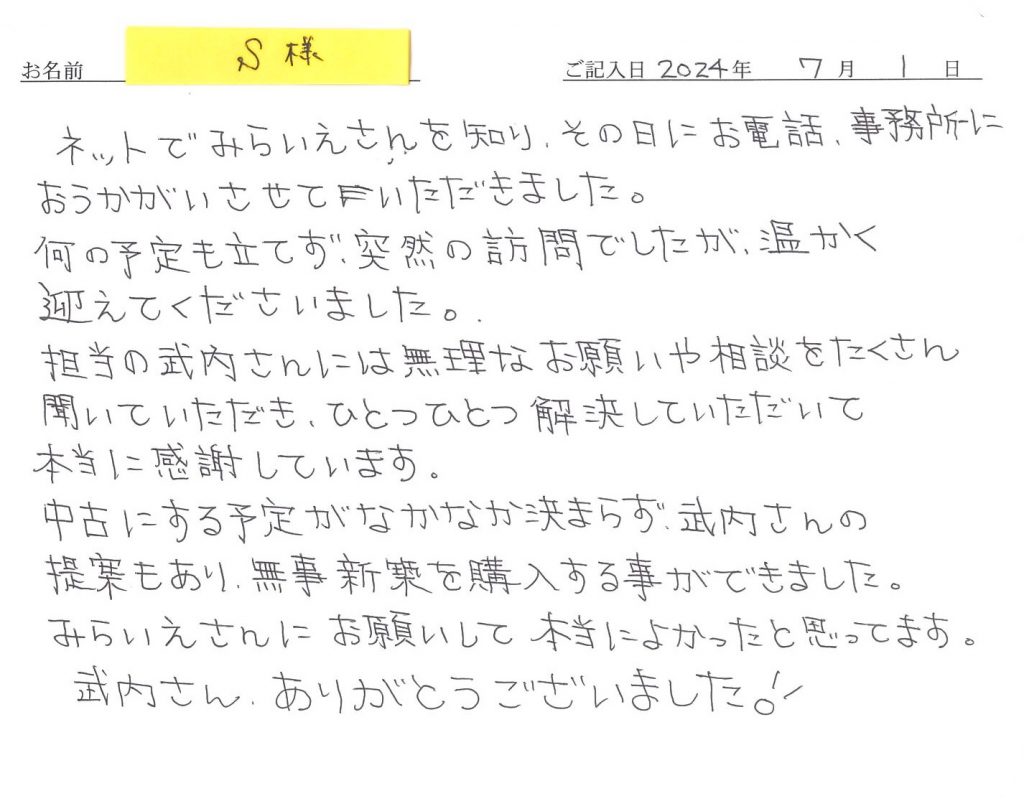 お名前 S 様 ご記入日 2024年 7月 1日
ネットでみらいえさんを知り、その日にお電話、事務所に
おうかがいさせていただきました。
何の予定も立てず、突然の訪問でしたが、温かく
迎えてくださいました。
担当の武内さんには無理なお願いや相談をたくさん
聞いていただき、ひとつひとつ解決していただいて
本当に感謝しています。
中古にする予定がなかなか決まらず、武内さんの
提案もあり、無事新築を購入する事ができました。
みらいえさんにお願いして本当によかったと思ってます。
武内さん、ありがとうございました!